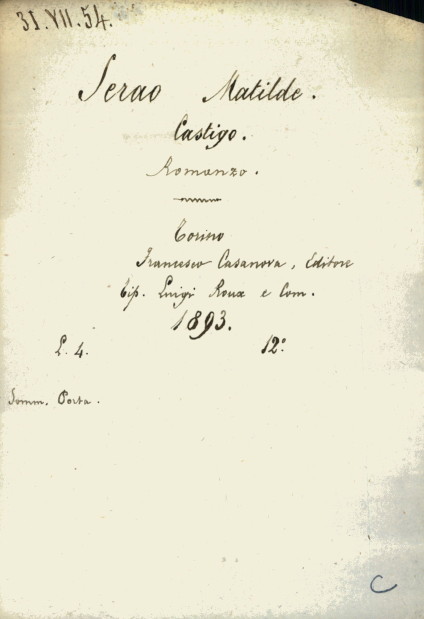 31.VII.54.
Serao Matilde.
Castigo.
Romanzo.
Torino
Francesco Casanova, Editore
Tip. Luigi Roux e Com.
1893.
L. 4. 12°
Somm. Porta.
C